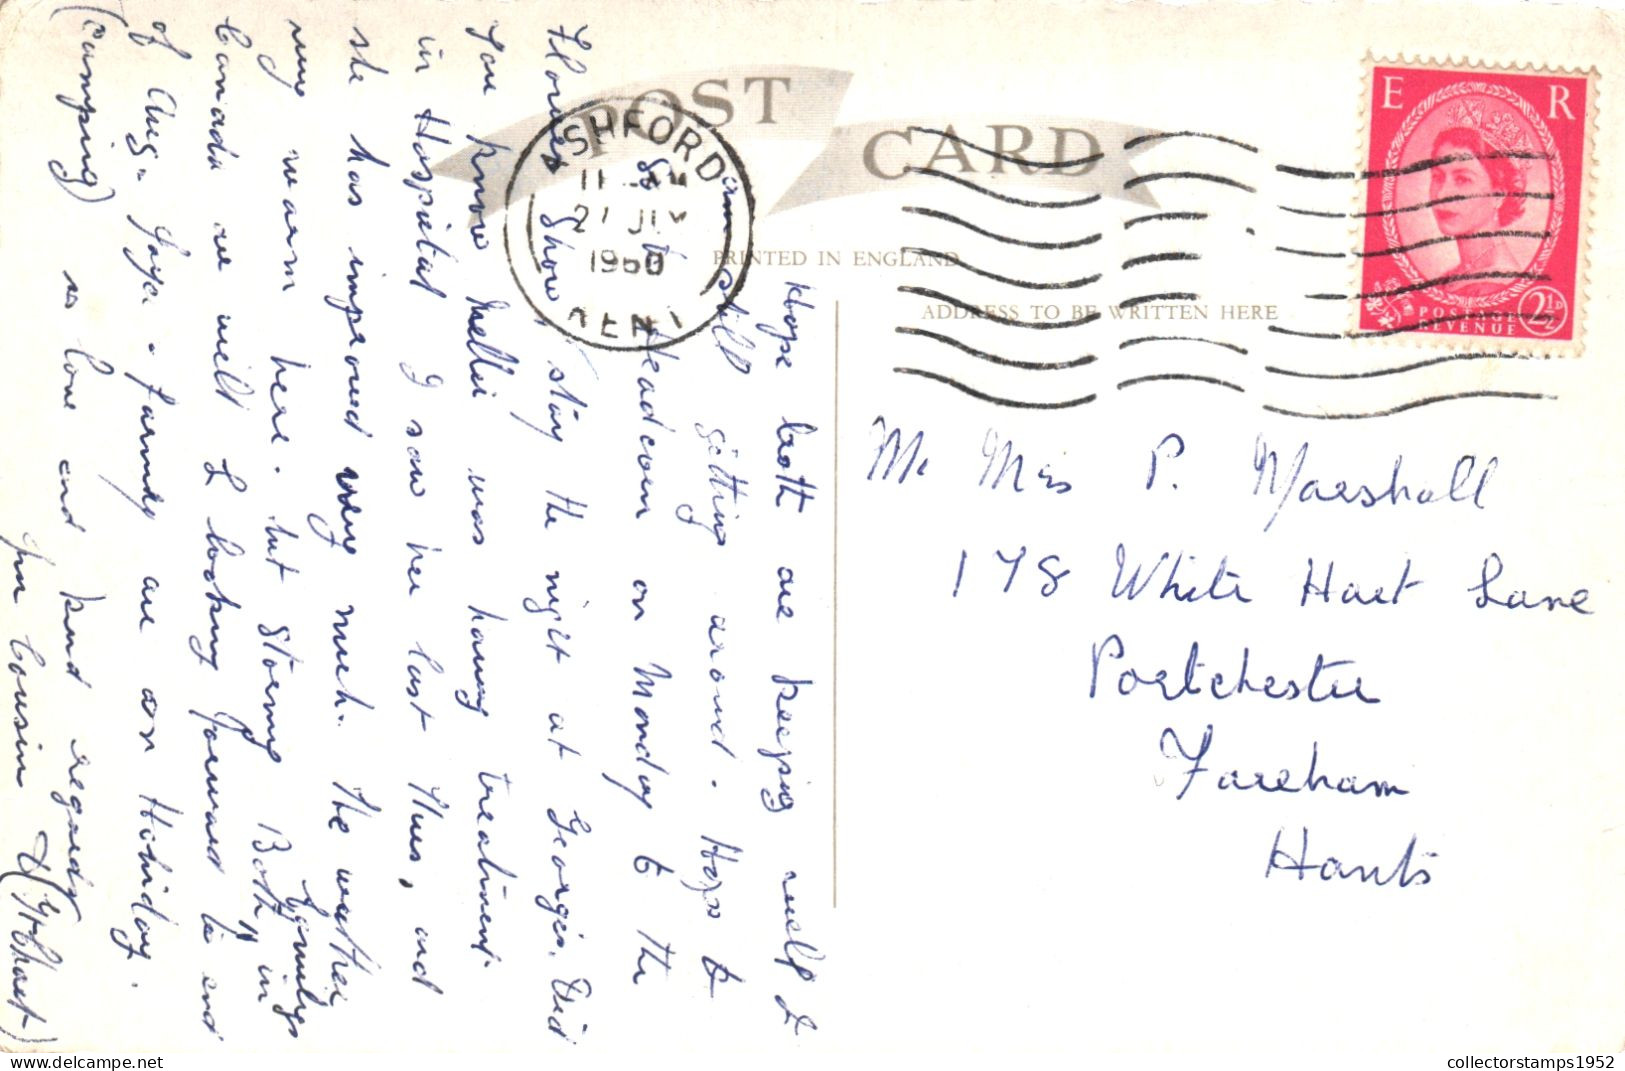 POST CARD
ASHFORD
1960
KENT
E R
POSTAGE
REVENUE
2½D
PRINTED IN ENGLAND
ADDRESS TO BE WRITTEN HERE
Mr Mrs P. Marshall
178 White Hart Lane
Portchester
Fareham
Hants
Hope both are keeping well I
am still getting around. Hope to
go to Headcorn on Monday to the
Flower Show, stay the night at Georges. Did
you know Nellie was having treatment
in Hospital I saw her last Thurs, and
she has improved very much. The weather
very warm here. but stormy Both Familys in
Canada are well & looking forward to end
of Aug. Joyce & Family are on Holiday.
(camping) so love and kind regards
you Cousin
collectorstamps1952